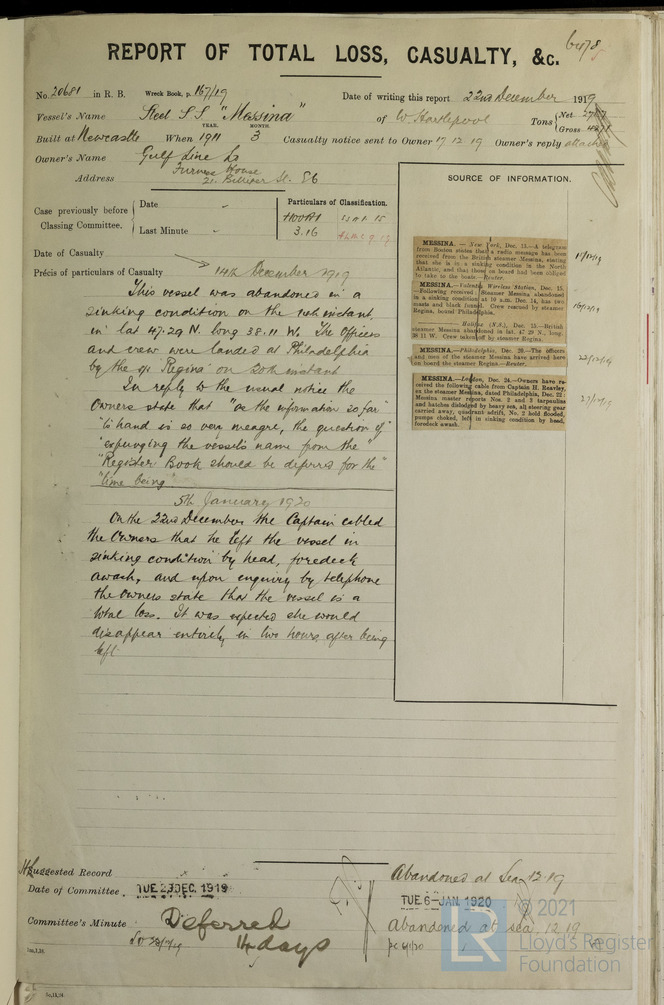 REPORT OF TOTAL LOSS, CASUALTY, &c. 6478
No. 20681 in R. B. Wreck Book, p. 167/19
Date of writing this report 22nd December 1919
Vessel's Name Steel S S "Messina" of W. Hartlepool
Tons Net
Gross
Built at Newcastle When YEAR. 1911 MONTH. 3 Casualty notice sent to Owner 17 12 19 Owner's reply attached
Owner's Name Gulf Line Ld
Address Furness House
Billiter St. E6
Case previously before Classing Committee.
Date "
Last Minute "
Particulars of Classification.
+100A1
3.16
SOURCE OF INFORMATION.
Date of Casualty
Précis of particulars of Casualty 14th December 1919
This vessel was abandoned in a
sinking condition on the 14th instant,
in lat 47.29 N. long 38.11 W. The Officers
and crew were landed at Philadelphia
by the "Regina" on 20th instant
In reply to the usual notice the
Owners state that "as the information so far"
"to hand is so very meagre, the question of"
"expunging the vessel's name from the
"Register Book should be deferred for the"
"time being".
5th January 1920
On the 22nd December the Captain cabled
the Owners that he left the vessel in
sinking condition by head, foredeck
awash, and upon enquiry by telephone
the Owners state that the vessel is a
total loss. It was expected she would
disappear entirely in two hours after being
left.
MESSINA.—New York, Dec. 15.—A telegram
from Boston states that a radio message has been
received from the British steamer Messina, stating
that she is in a sinking condition in the North
Atlantic, and that those on board had been obliged
to take to the boats.—Reuter.
MESSINA.—Valentia Wireless Station, Dec. 15.
—Following received: Steamer Messina abandoned
in a sinking condition at 10 a.m. Dec. 14, has two
masts and black funnel. Crew rescued by steamer
Regina, bound Philadelphia.
—Halifax (N.S.), Dec. 15.—British
steamer Messina abandoned in lat. 47 29 N., long.
38 11 W. Crew taken off by steamer Regina.
16/12/19
MESSINA.—Philadelphia, Dec. 20.—The officers
and men of the steamer Messina have arrived here
on board the steamer Regina.—Reuter.
22/12/19
MESSINA.—London, Dec. 24.—Owners have re-
ceived the following cable from Captain H. Rearley,
ex the steamer Messina, dated Philadelphia, Dec. 22:
Messina master reports Nos. 2 and 3 tarpaulins
and hatches dislodged by heavy sea, all steering gear
carried away, quadrant adrift, No. 2 hold flooded,
pumps choked, left in sinking condition by head,
foredeck awash.
Suggested Record Abandoned at Sea 12.19
Date of Committee TUE 23 DEC. 1919 TUE 6-JAN. 1920
Committee's Minute Deferred
14 days
Abandoned at sea, 12.19
© 2021
Lloyd's Register
Foundation
LR